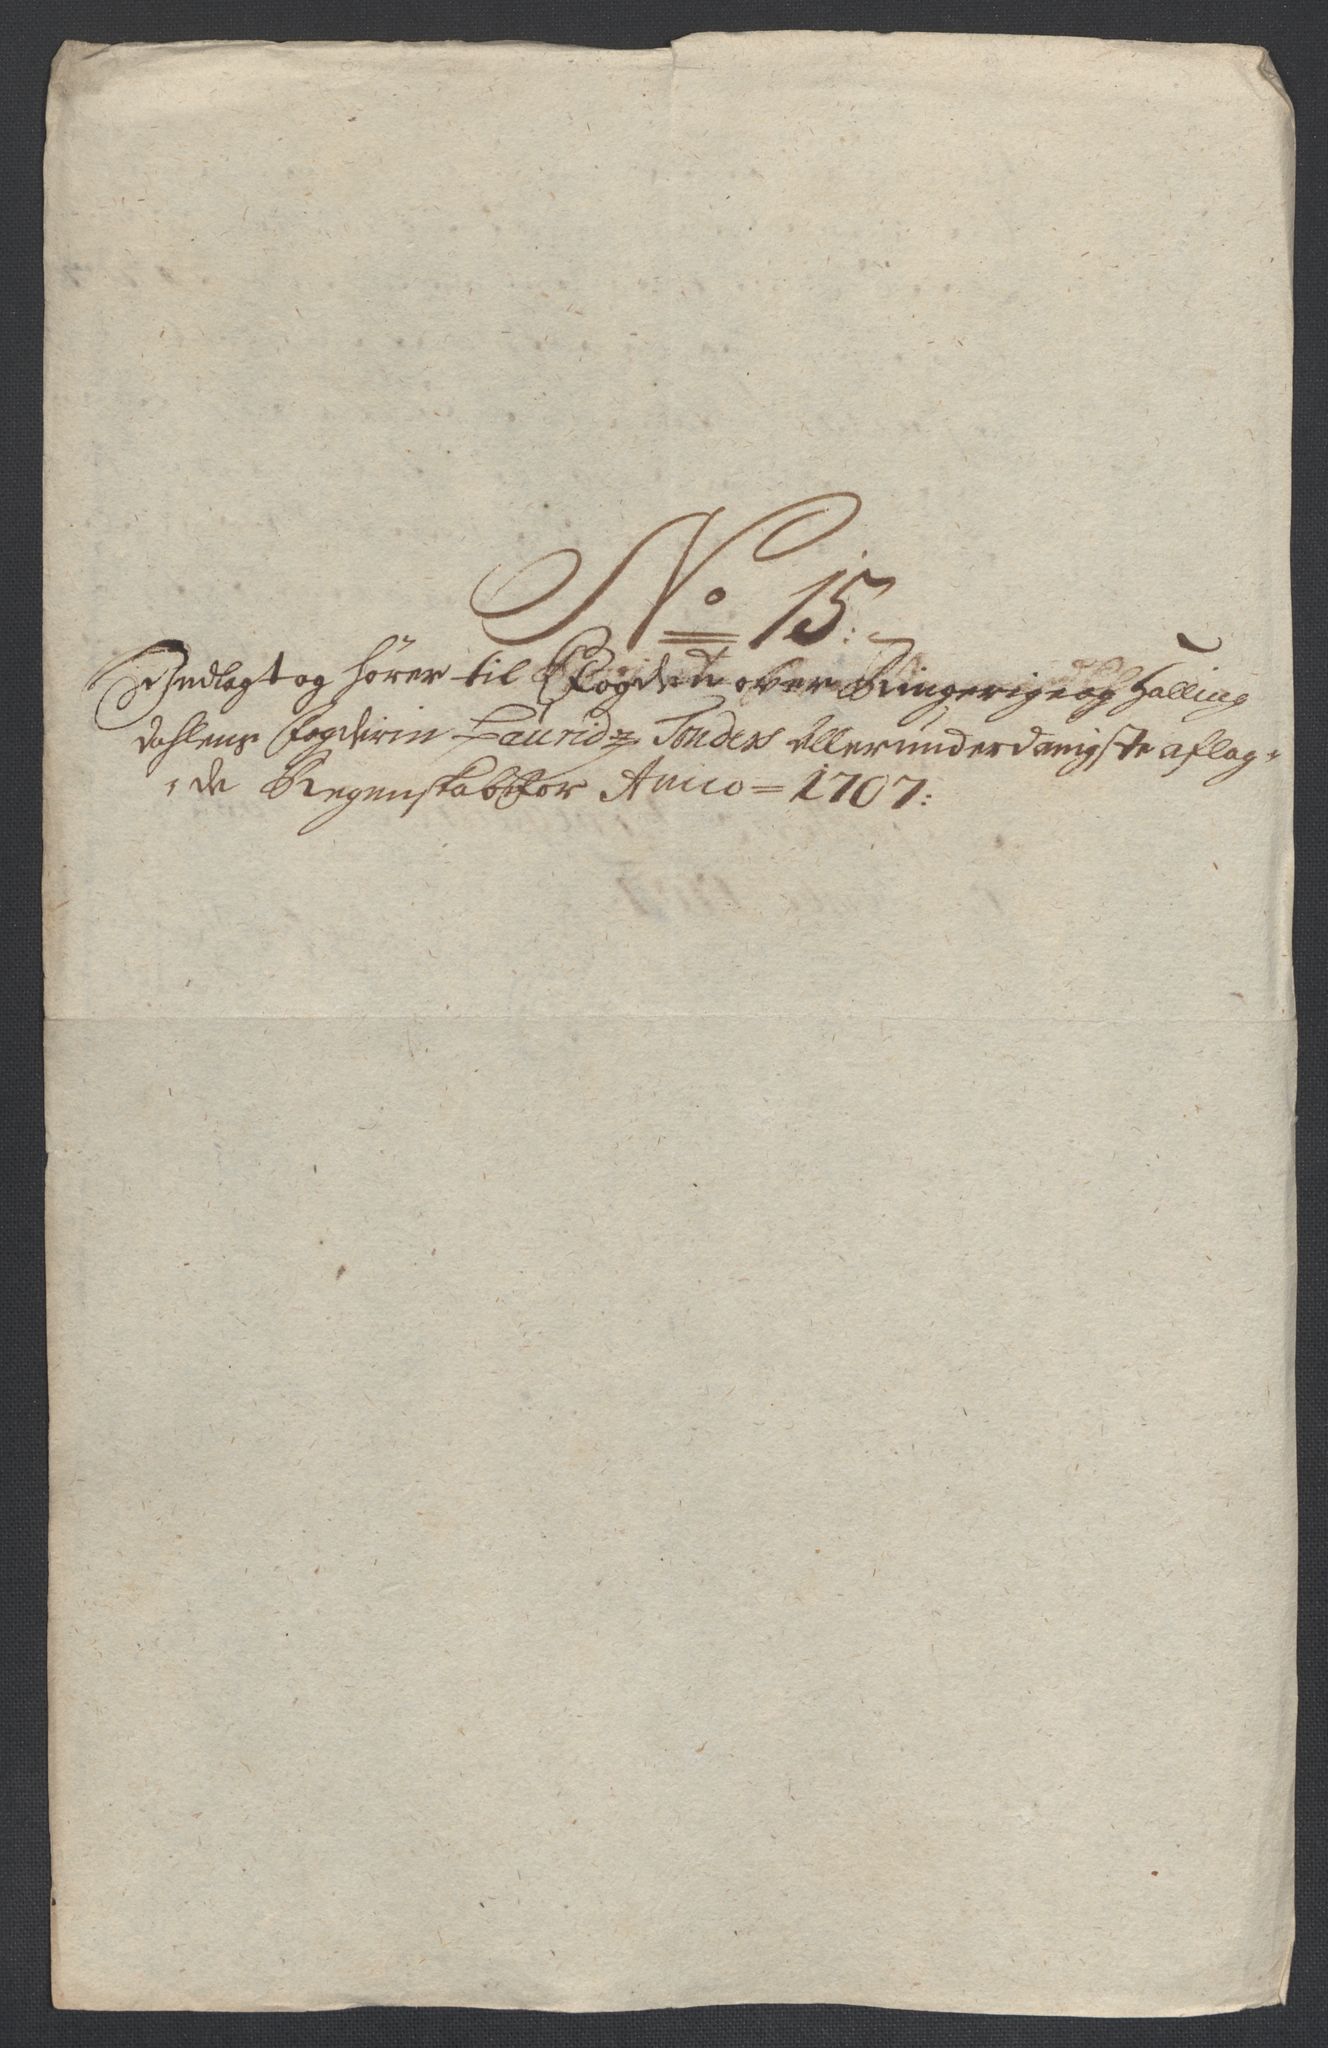 No 15:
Indlagt og hører til Fogden over Ringerige og Halling
dahlens fogderin Lauridz Tønders allerunderdanigste aflag-
-de Regenskab for Anno = 1707: